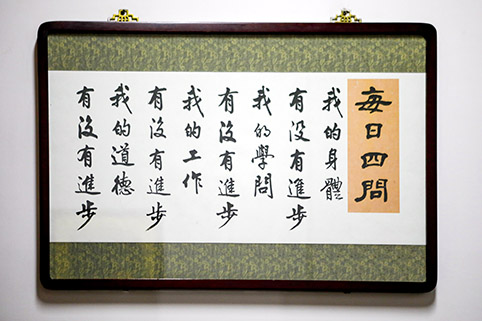 每日四問
我的身體
有没有進步
我的學問
有没有進步
我的工作
有没有進步
我的道德
有没有進步